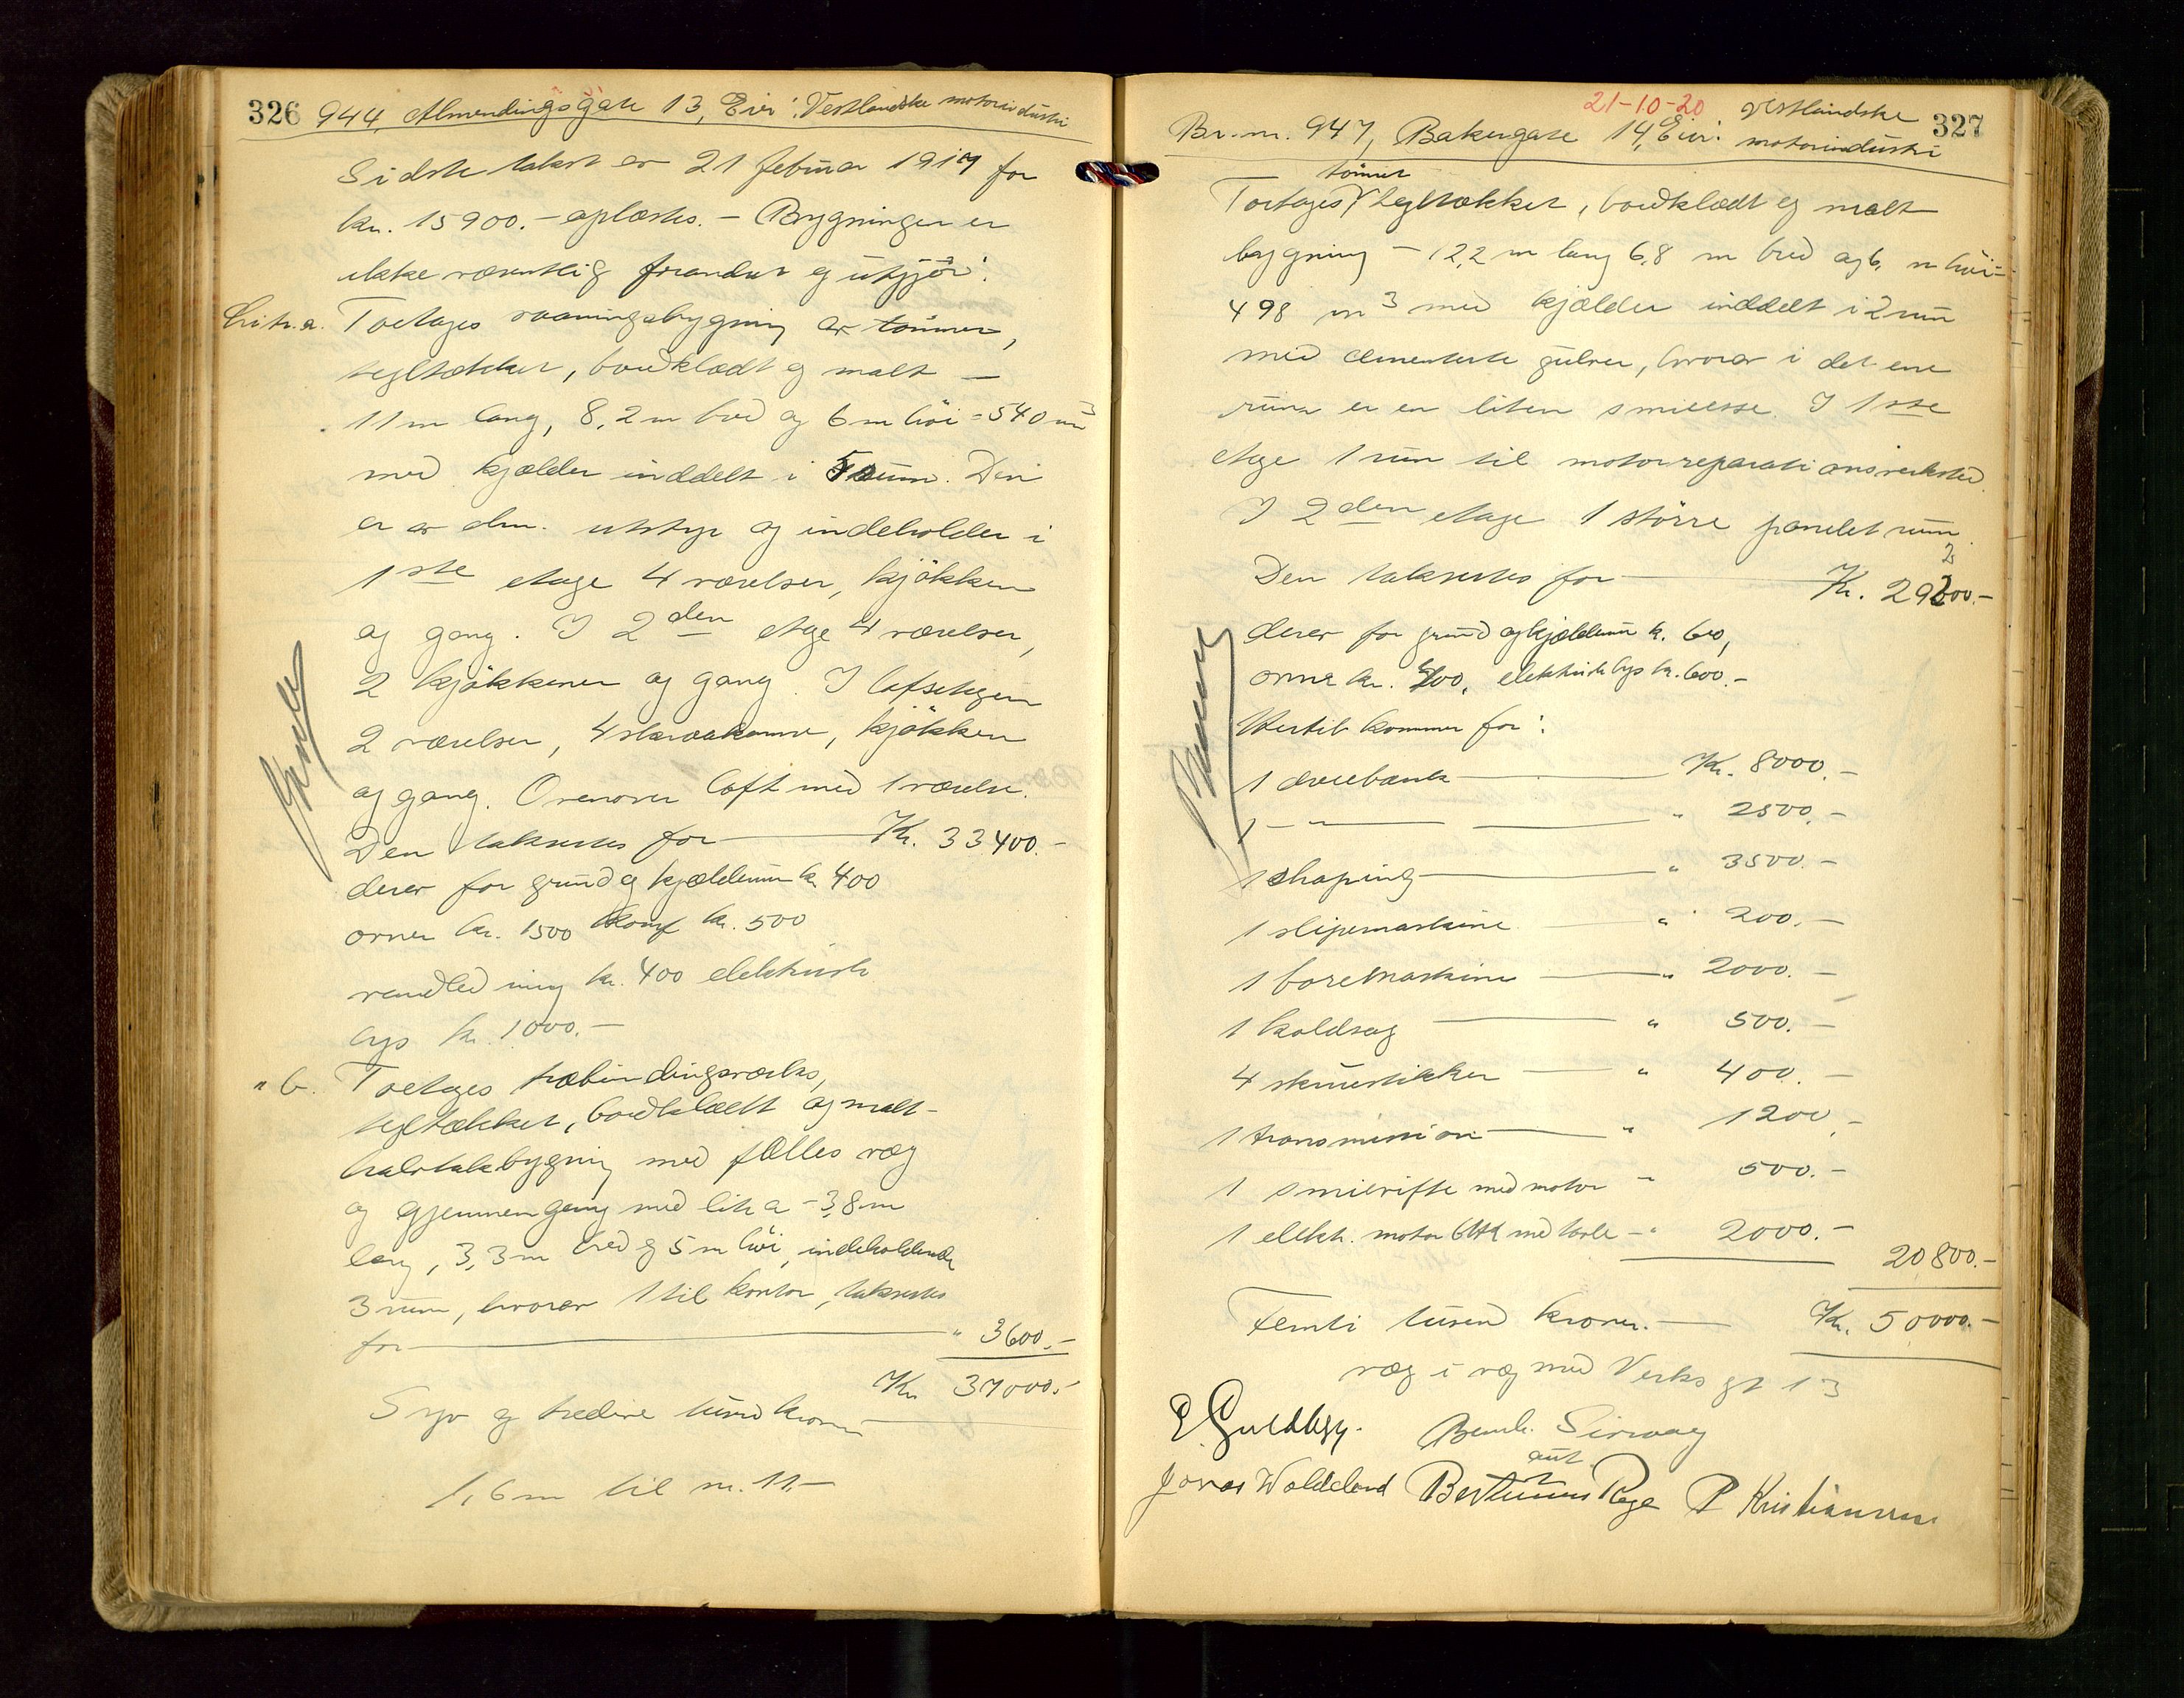 326 944, Almendingsgate 13, Eier: Vestlandske motorindustri
Sidste takst av 21 februar 1917 for
kr. 15900.- oplæstes. - Bygningen er
ikke væsentlig forandret og utgjör:
Litr. a. Toetages vaaningsbygning av tömmer,
tegltækket, bordklædt og malt -
11 m lang, 8,2 m bred og 6 m höi = 540 m³
med kjælder inddelt i 5 rum. Den
er av alm. utstyr og indeholder i
1ste etage 4 værelser, kjökken
og gang. I 2den etage 4 værelser,
2 kjökkener og gang. I loftsetagen
2 værelser, 4 skraakamre, kjökken
og gang. Ovenover loft med 1 værelse.
Den takseres for Kr. 33400.-
derav for grund og kjælderrum kr 400
ovner kr. 1500 komf kr. 500
vandledning kr. 400 elektrisk
lys kr. 1000.-
" b. Toetages træbindingsværks,
tegltækket, bordklædt og malt
halvtakbygning med fælles væg
og gjennemgang med litr a - 3,8 m
lang, 3,3 m bred og 5 m höi, indeholdende
3 rum, hvorav 1 til kontor, takseres
for " 3600.-
Kr 37000.-
Syv og tredive tusind kroner
1,6 m til nr. 11.-
21-10-20
Br.nr. 947, Bakergate 14, Eier: Vestlandske motorindustri 327
tömmer
Toetages tegltækket, bordklædt og malt
bygning - 12,2 m lang 6,8 m bred og 6, m höi =
498 m³ med kjælder inddelt i 2 rum
med cementerte gulver, hvorav i det ene
rum er en liten smiesse. I 1ste
etage 1 rum til motorreparationsverksted.
I 2den etage 1 större panelet rum.
2
Den takseres for Kr. 29200.-
derav for grund og kjælderrum kr. 600,
ovner kr. 400, elektrisk lys kr. 600.-
Hertil kommer for:
1 dreiebænk Kr. 8000.-
1 - " - " 2500.-
1 shaping " 3500.-
1 slipemaskine " 200.-
1 boremaskine " 2000.-
1 koldsag " 500.-
4 skruestikker " 400.-
1 transmission " 1200.-
1 smievifte med motor " 500.-
1 elektr. motor 6 HK med tavle - " 2000.-
20800.-
Femti tusend kroner. Kr. 50000.-
væg i væg med Verks gt 13
E. Guldbyg. Bernh. Sirevaag
Jonas Waldeland Bertinius Rege P Kristiansen